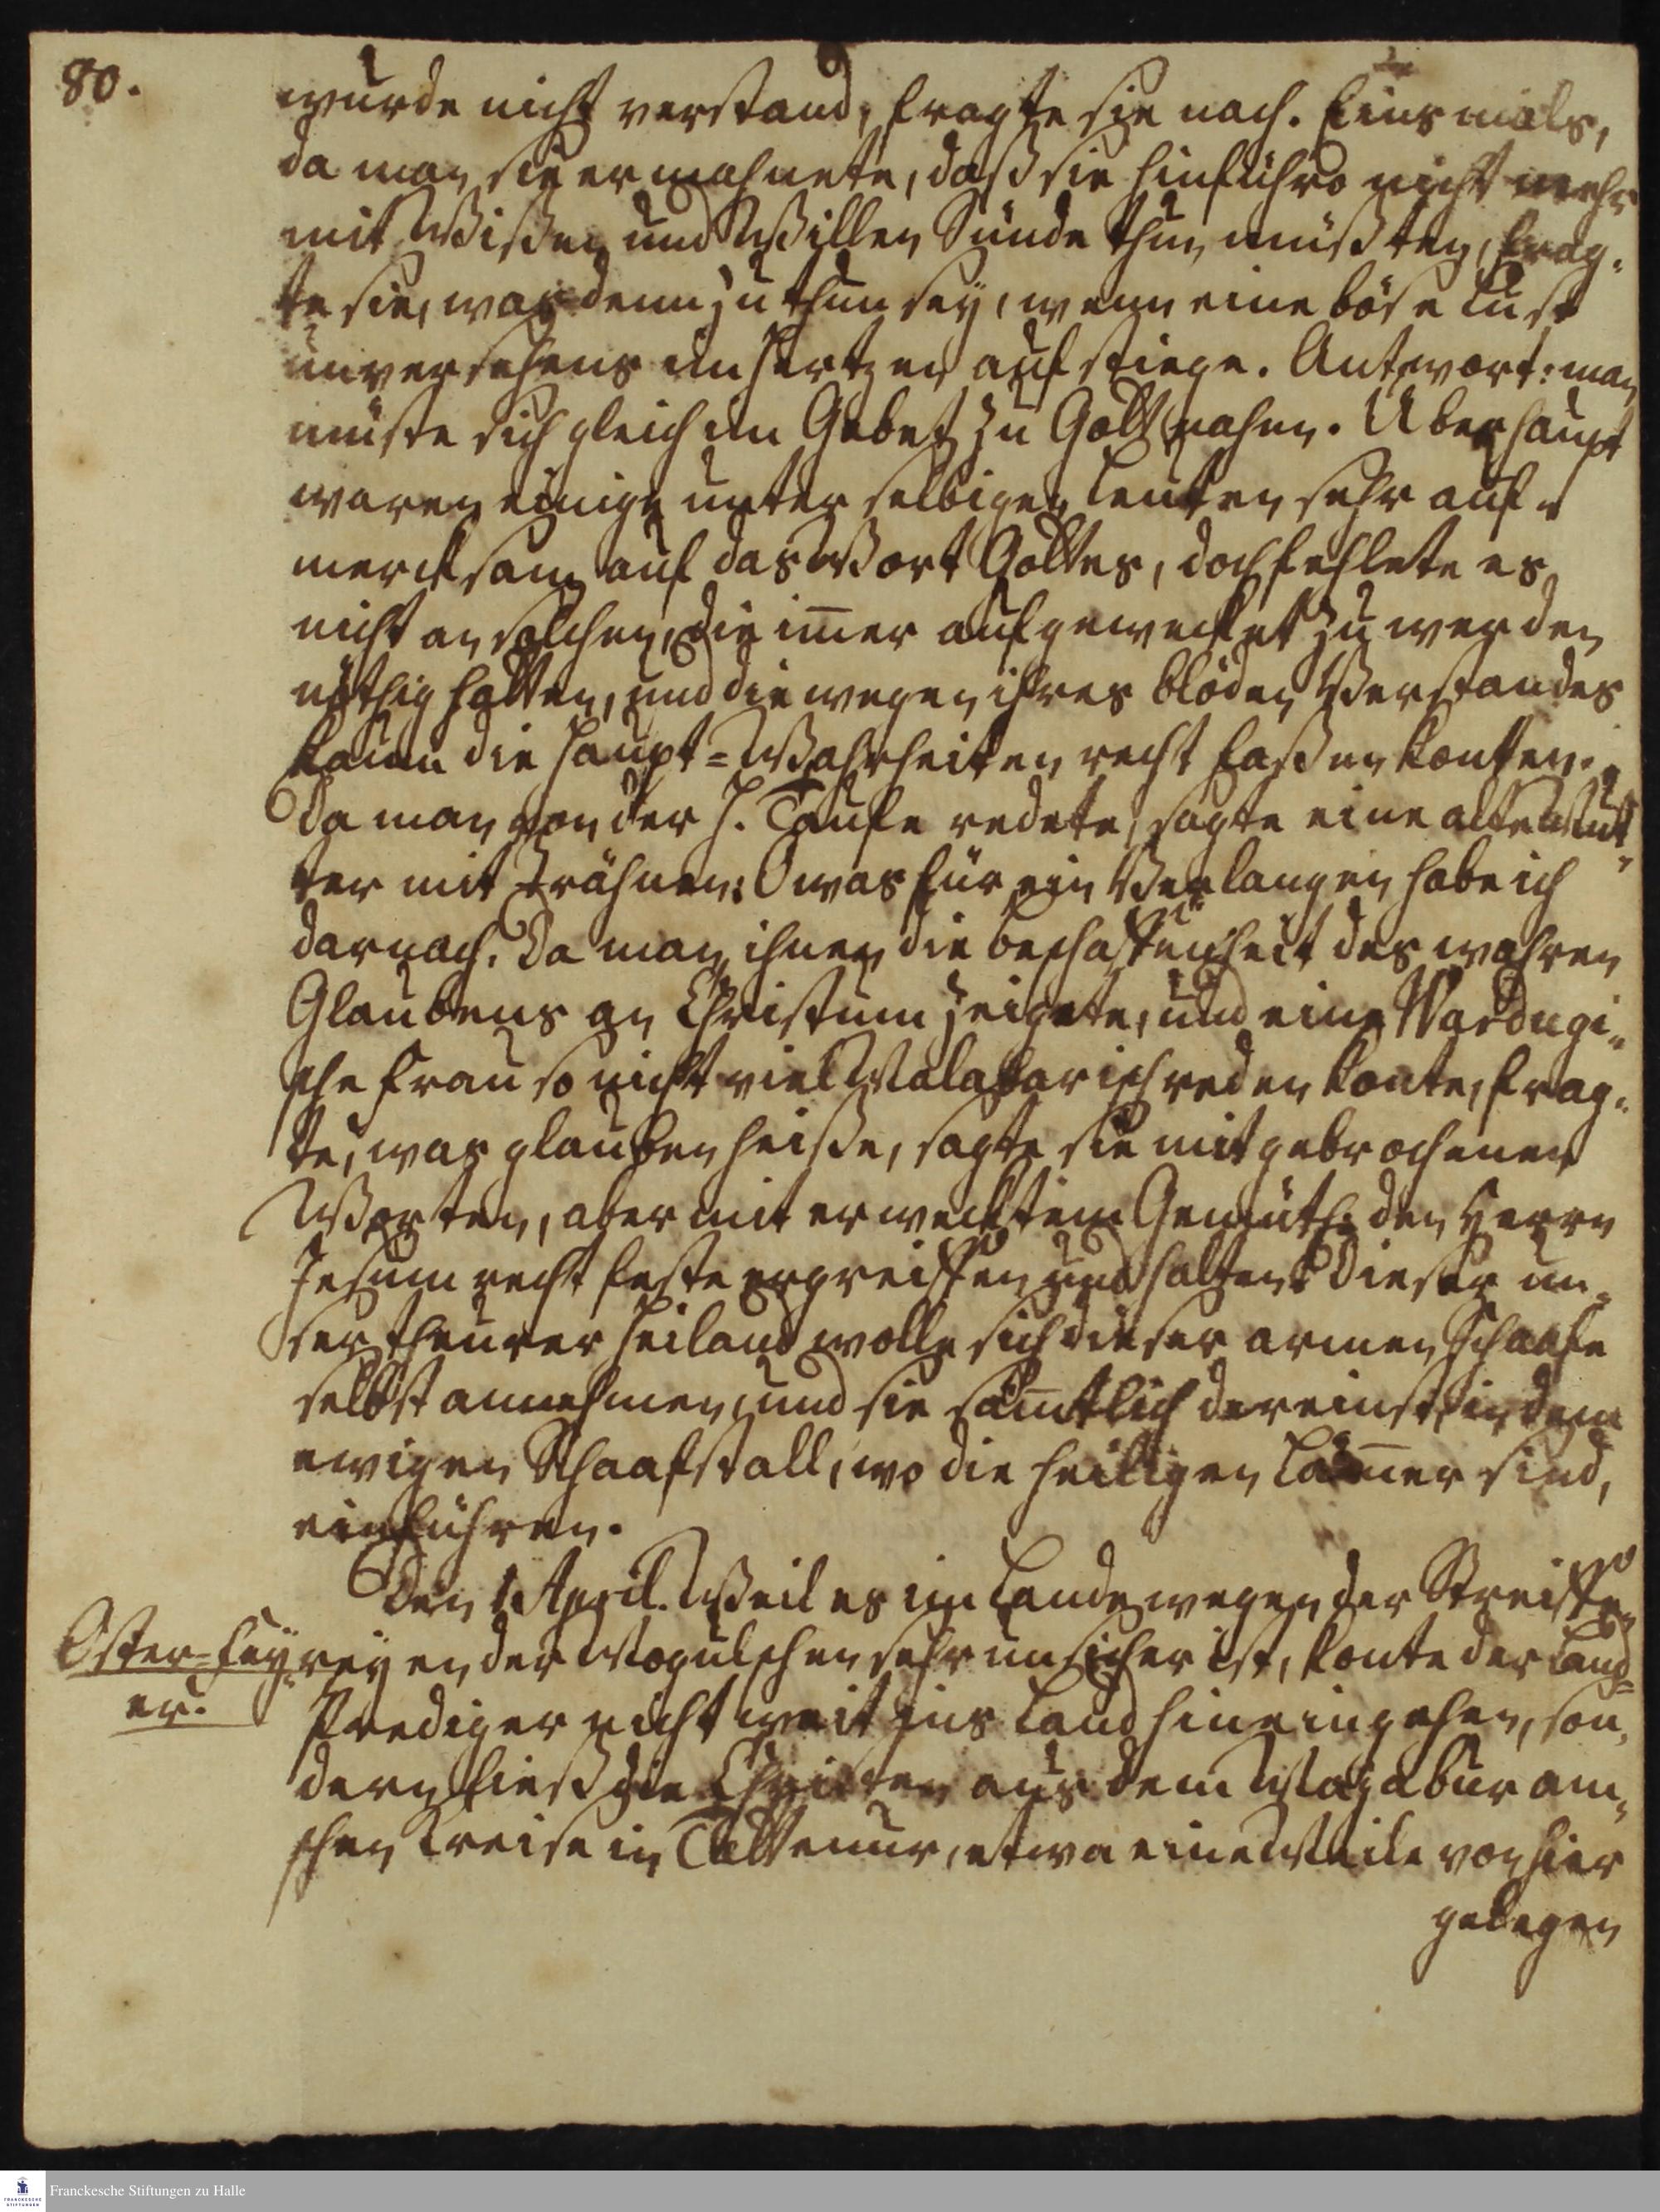 80.
wurde nicht verstand, fragte sie nach. Einsmals,
da man sie ermahnete, daß sie hinführo nicht mehr
mit Wißen und Willen Sünde thun müßten, frag„
te sie, was denn zu thun sey, wenn eine böse Lust
unversehens im Hertzen aufstiege. Antwort: man
müste sich gleich im Gebet zu Gott nahen. Uberhaupt
waren einige unter selbigen Leuten sehr auf„
mercksam auf das Wort Gottes, doch fehlete es
nicht an solchen, die im̄er aufgewecket zu werden
nöthig hatten, und die wegen ihres blöden Verstandes
kaum die Haupt=Wahrheiten recht faßen konten.
Da man von der H. Taufe redete, sagte eine alte Mut„
ter mit Trähnen: O was für ein Verlangen habe ich
darnach. Da man ihnen die beschaffenheit des wahren
Glaubens an Christum zeigete, und eine Wardugi„
sche Frau so nicht viel Malabarisch reden konte, frag„
te, was glauben heiße, sagte sie mit gebrochenen
Worten, aber mit erwecktem Gemüth: den Herrn
Jesum recht feste ergreiffen und halten. Dieser un„
ser theurer Heiland wolle sich dieser armen Schaafe
selbst annehmen, und sie säm̄tlich dereinst in dem
ewigen Schaafstall, wo die heiligen Läm̄er sind,
einführen.
Den 1. April. Weil es im Lande wegen der Streiffe„
Oster=Fey„
er.
reyen der Mogulschen sehr unsicher ist, konte der Land=
Prediger nicht weit ins Land hinein gehen, son„
dern ließ die Christen aus dem Majaburam„
schen Creise in Tillenur, etwa eine Meile von hier
gelegen
Franckesche Stiftungen zu Halle